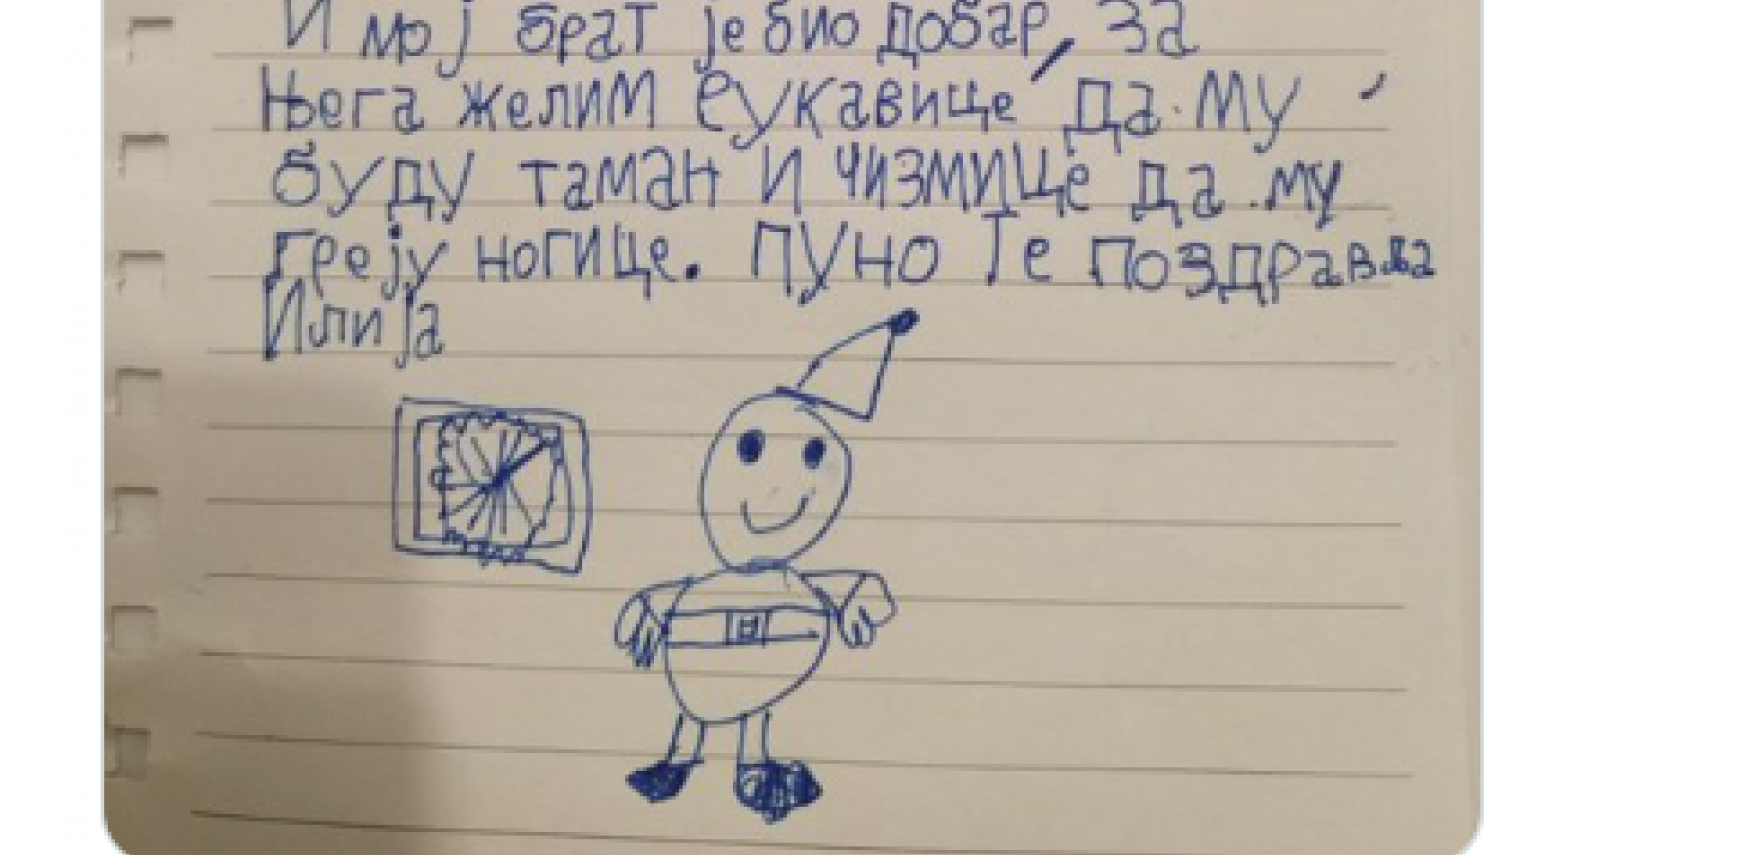 И мој брат је био добар, за
њега желим рукавице да му
буду таман и чизмице да му
греју ногице. Пуно те поздравља
Илија